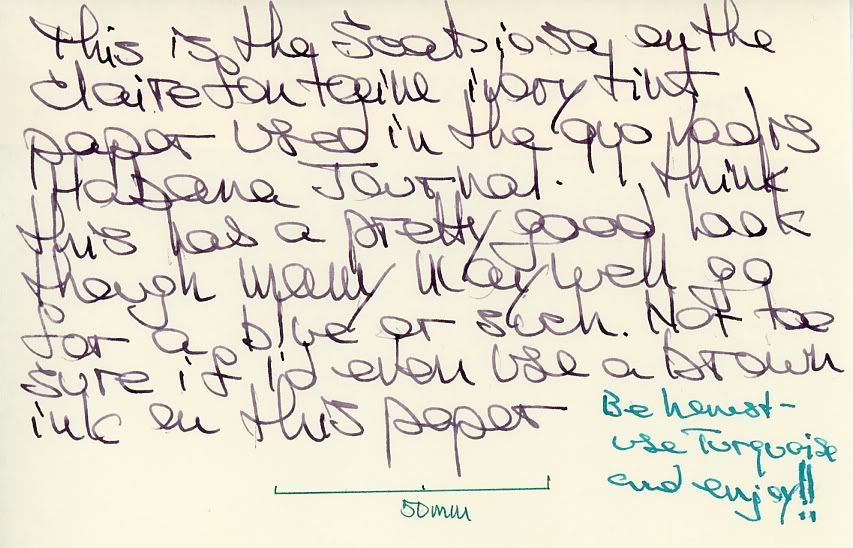 This is the Scabiosa on the
Clairefontaine ivory tint
paper used in the Quo Vadis
Habana Journal. I think
this has a pretty good look
though many may well go
for a blue or such. Not too
sure if I'd even use a brown
ink on this paper
Be honest -
use Turquoise
and enjoy!!
50mm